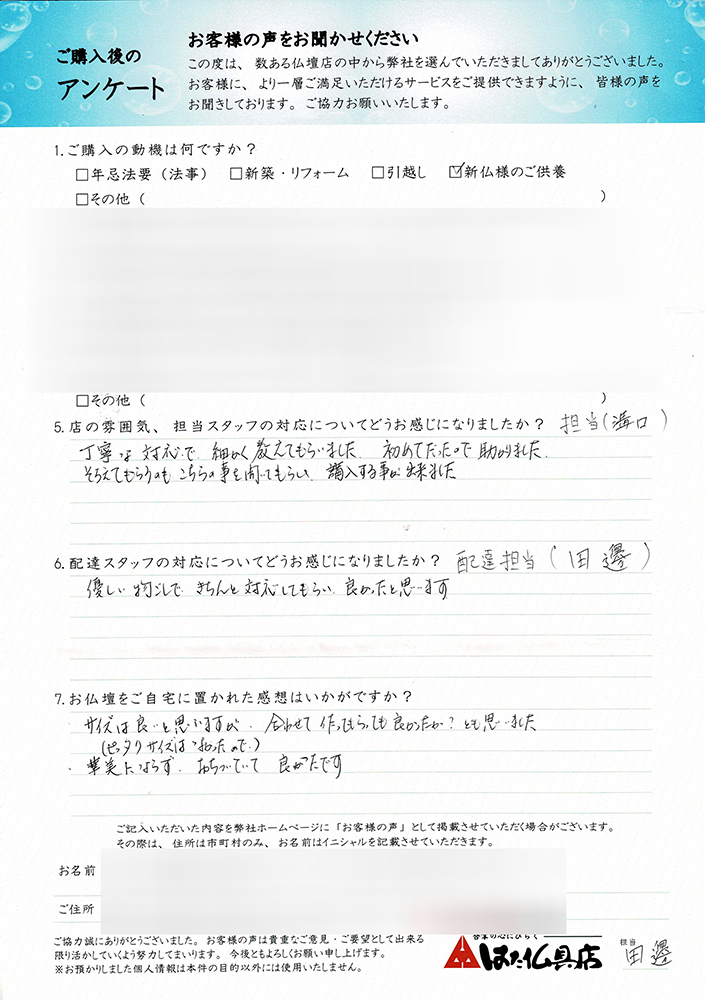 ご購入後の
アンケート
お客様の声をお聞かせください
この度は、数ある仏壇店の中から弊社を選んでいただきましてありがとうございました。
お客様に、より一層ご満足いただけるサービスをご提供できますように、皆様の声を
お聞きしております。ご協力お願いいたします。
1.ご購入の動機は何ですか？
□年忌法要（法事） □新築・リフォーム □引越し ☑新仏様のご供養
□その他（ ）
□その他（ ）
5.店の雰囲気、担当スタッフの対応についてどうお感じになりましたか？ 担当(溝口)
丁寧な対応で、細かく教えてもらいました。初めてだったので助かりました。
そろえてもらうのもこちらの事を聞いてもらい、購入する事が出来ました
6.配達スタッフの対応についてどうお感じになりましたか？ 配達担当(田邊)
優しい物ごしで、きちんと対応してもらい、良かったと思います
7.お仏壇をご自宅に置かれた感想はいかがですか？
・サイズは良いと思いますが、合わせて作ってもらっても良かったか？とも思いました
(ピッタリサイズは なかったので)
・華美にならず、おちついていて 良かったです
ご記入いただいた内容を弊社ホームページに「お客様の声」として掲載させていただく場合がございます。
その際は、住所は市町村のみ、お名前はイニシャルを記載させていただきます。
お名前
ご住所
ご協力誠にありがとうございました。お客様の声は貴重なご意見・ご要望として出来る
限り活かしていくよう努力してまいります。今後ともよろしくお願い申し上げます。
※お預かりしました個人情報は本件の目的以外には使用いたしません。
はた仏具店
担当 田邊